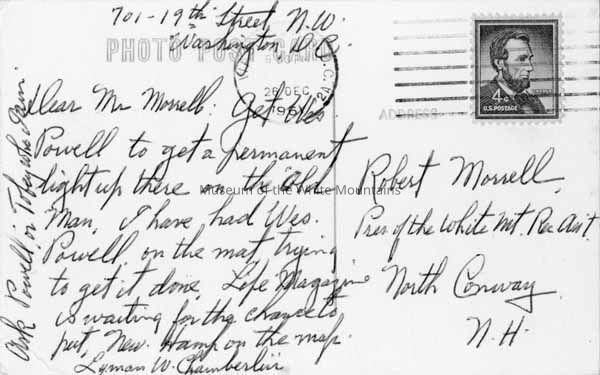 701-19th Street, N.W.
Washington, D.C.
PHOTO POST CARD
26 DEC
4¢
U.S. POSTAGE
ADDRESS
Dear Mr Morrell: Get Wes.
Powell to get a permanent
light up there on the Old
Man, I have had Wes.
Powell, on the mat, trying
to get it done, Life Magazine
is waiting for the chance to
put, New. Hamp on the map.
Lyman W. Chamberlin
Ask Powell, or Tobey who I am.
Robert Morrell,
Pres of the White Mt. Rec Ass't.
North Conway
N.H.
Museum of the White Mountains